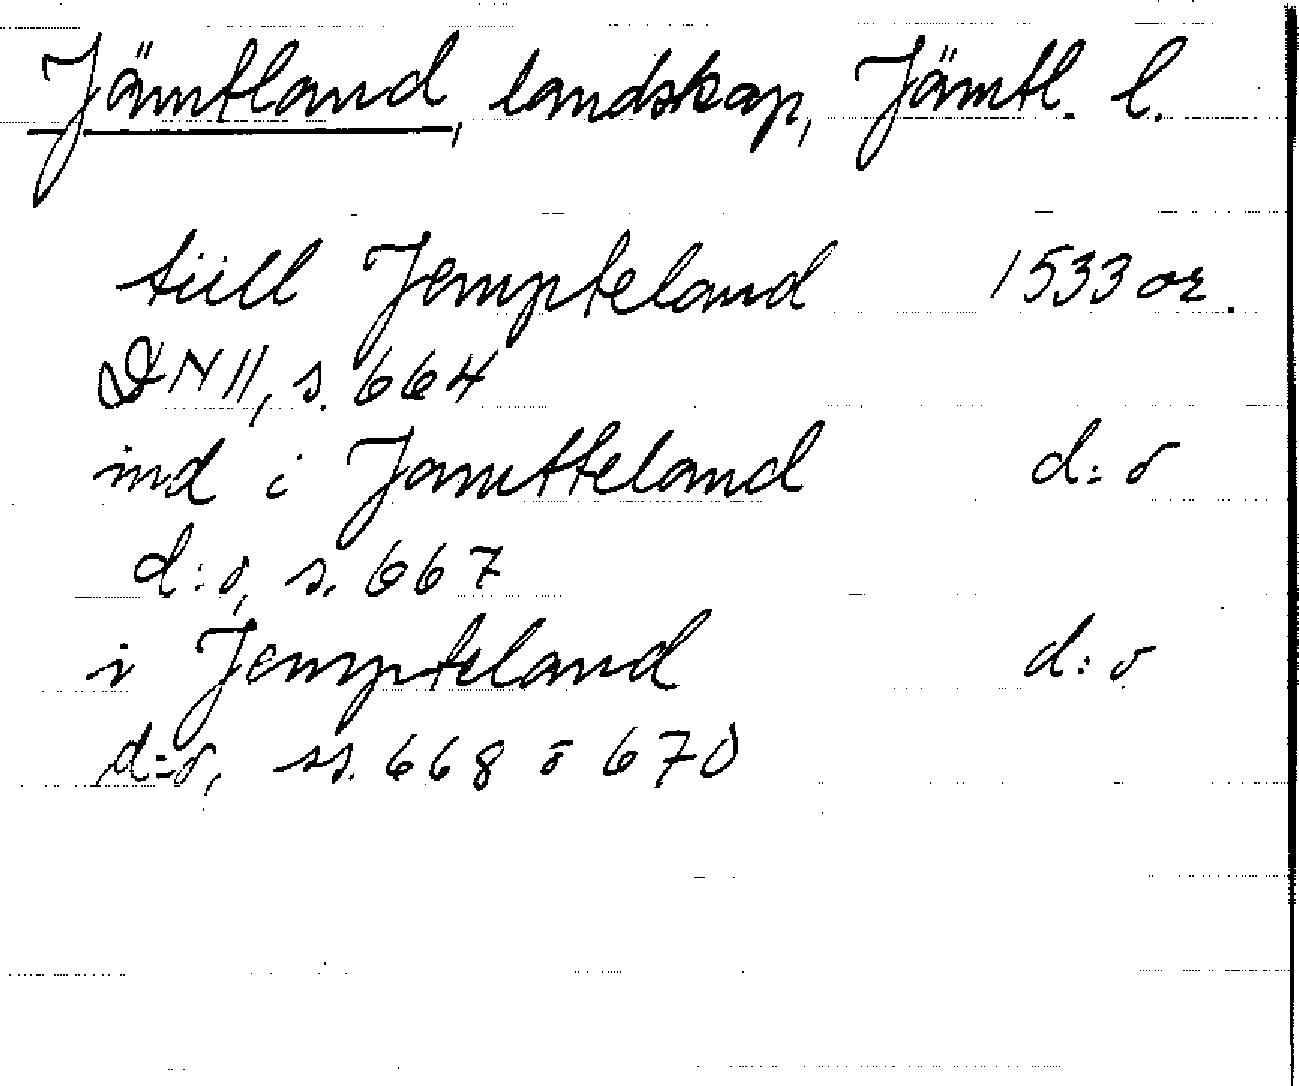 Jämtland, landskap, Jämtl. l.
tiill Jempteland 1533 or.
DN 11, s. 664
ind i Jamtteland d:o
d:o, s. 667
i Jempteland d:o
d:o, ss. 668 o 670